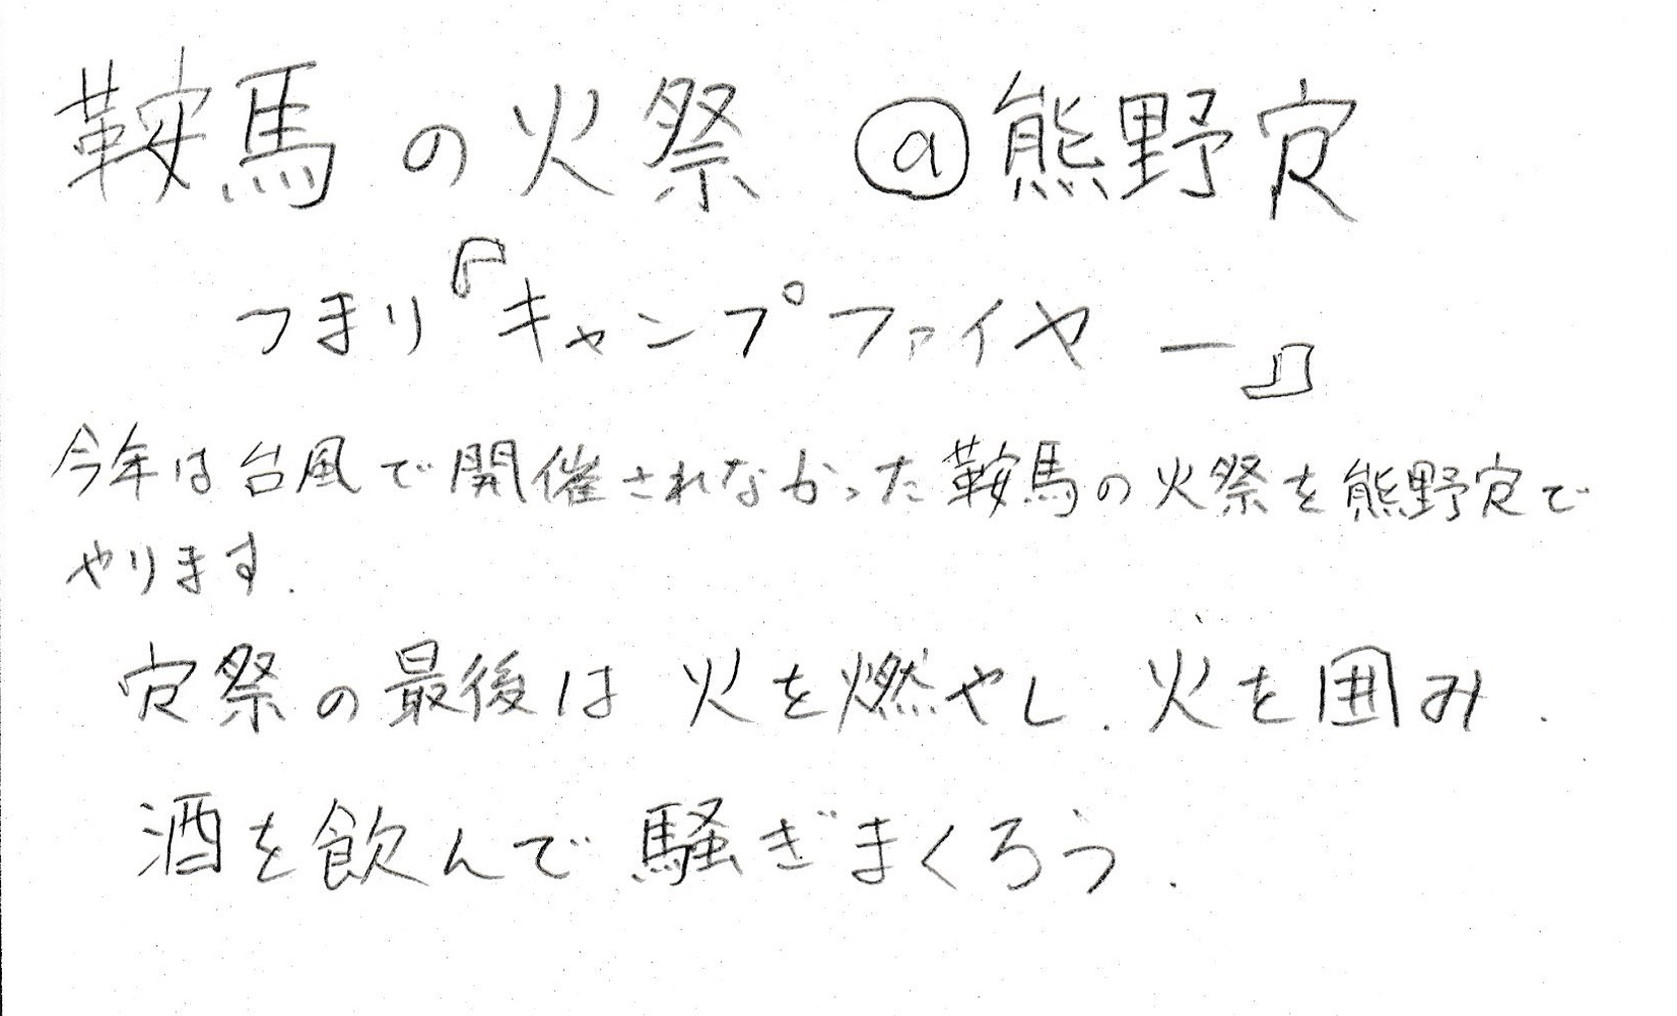 鞍馬の火祭 @熊野寮
つまり『キャンプファイヤー』
今年は台風で開催されなかった鞍馬の火祭を熊野寮で
やります.
寮祭の最後は 火を燃やし. 火を囲み.
酒を飲んで 騒ぎまくろう.